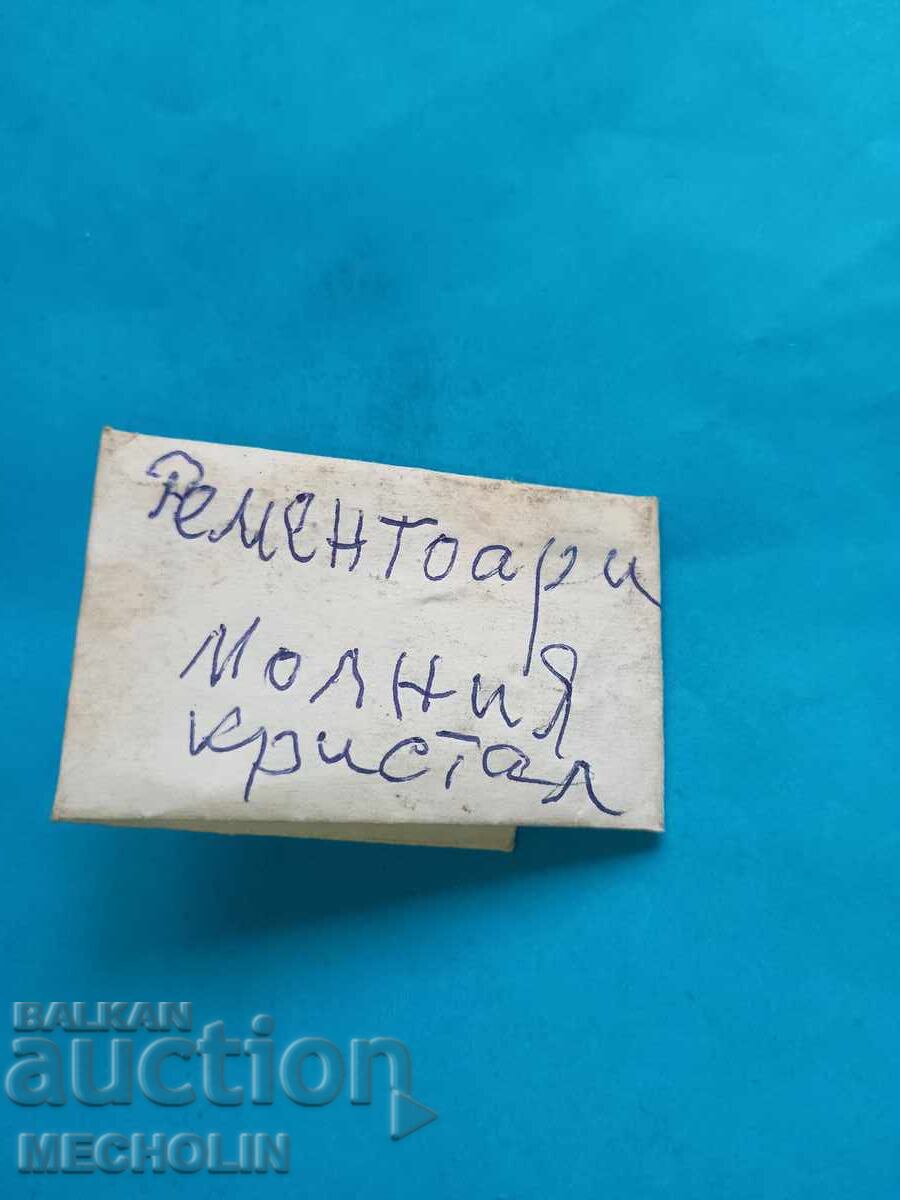 Рементоари
Молния
кристал
BALKAN
auction
MECHOLIN